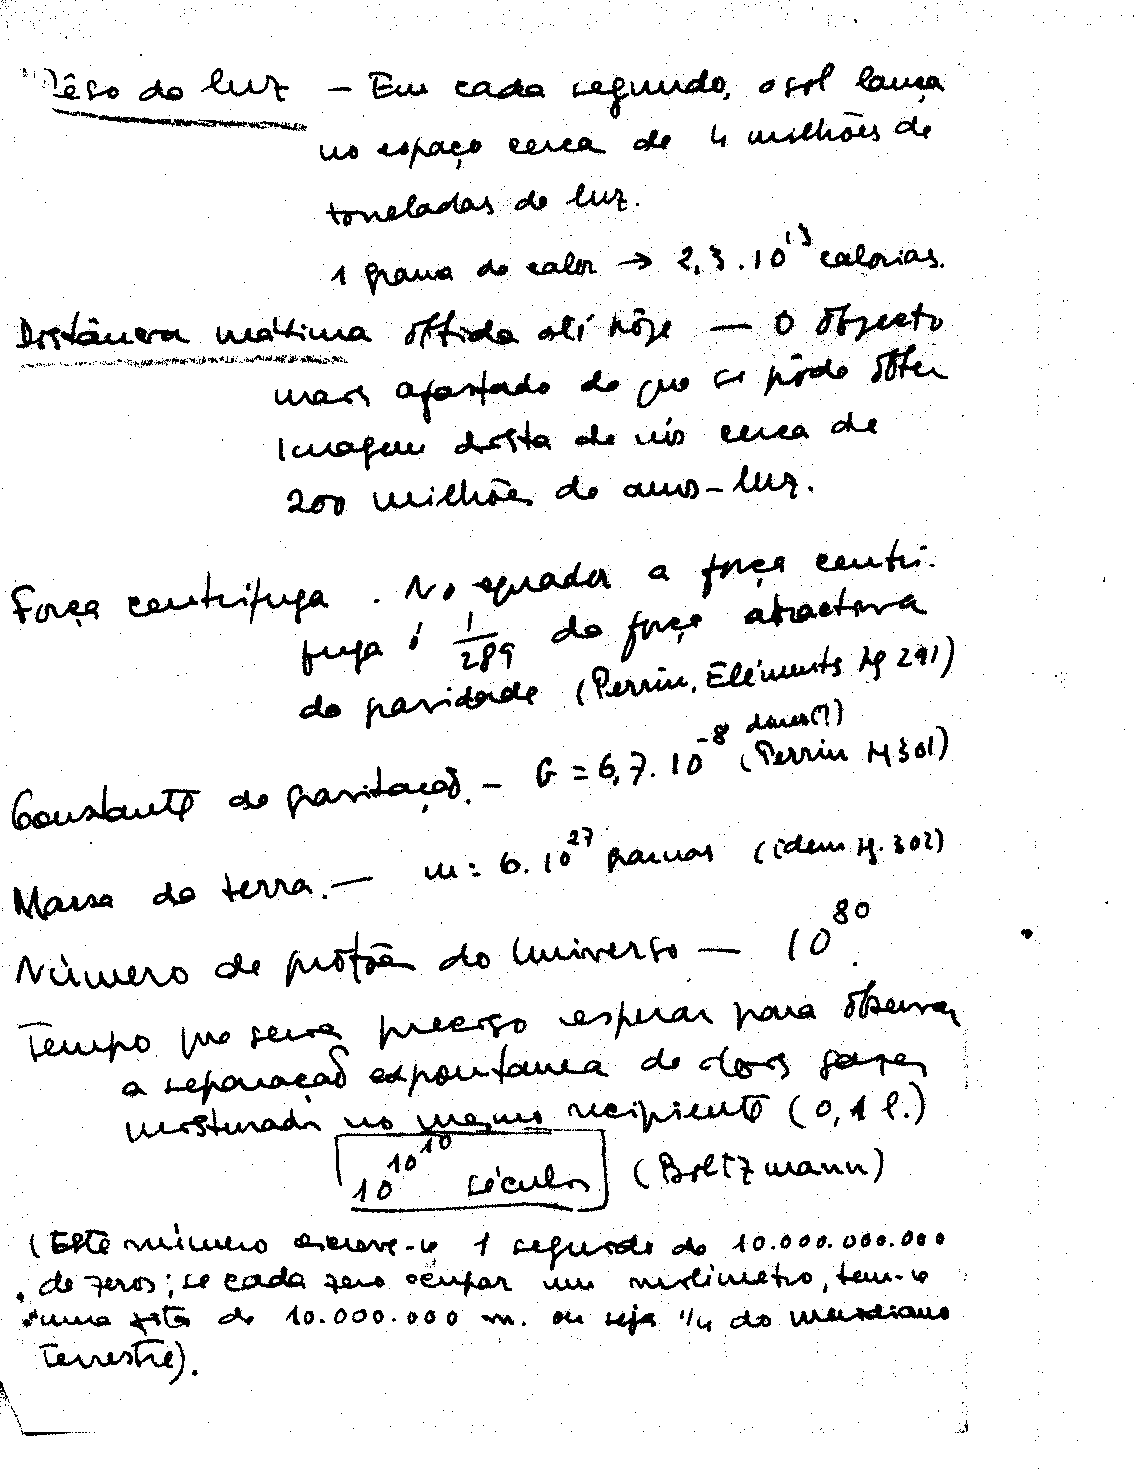 Pêso da luz – Em cada segundo, o sol lança
no espaço cerca de 4 milhões de
toneladas de luz.
1 grama de calor → 2,3.10¹³ calorias.
Distância máxima obtida até hôje — O objecto
mais afastado de que se pôde obter
imagem dista de nós cerca de
200 milhões de anos-luz.
Força centrífuga. No equador a força centrí-
fuga é 1/289 da força atractiva
da gravidade (Perrin, Eléments pg 291)
Constante de gravitação. – G = 6,7.10⁻⁸ (Perrin pg 301)
Massa da terra. — m = 6.10²⁷ gramas (idem pg. 302)
Número de protões do Universo — 10⁸⁰.
Tempo que seria preciso esperar para observar
a separação espontanea de dois gases
misturados no mesmo recipiente (0,1 l.)
10^10^10 séculos (Boltzmann)
(Este número escreve-se 1 seguido de 10.000.000.000
de zeros; se cada zero ocupar um milimetro, tem-se
uma fita de 10.000.000 m. ou seja 1/4 do meridiano
terrestre).